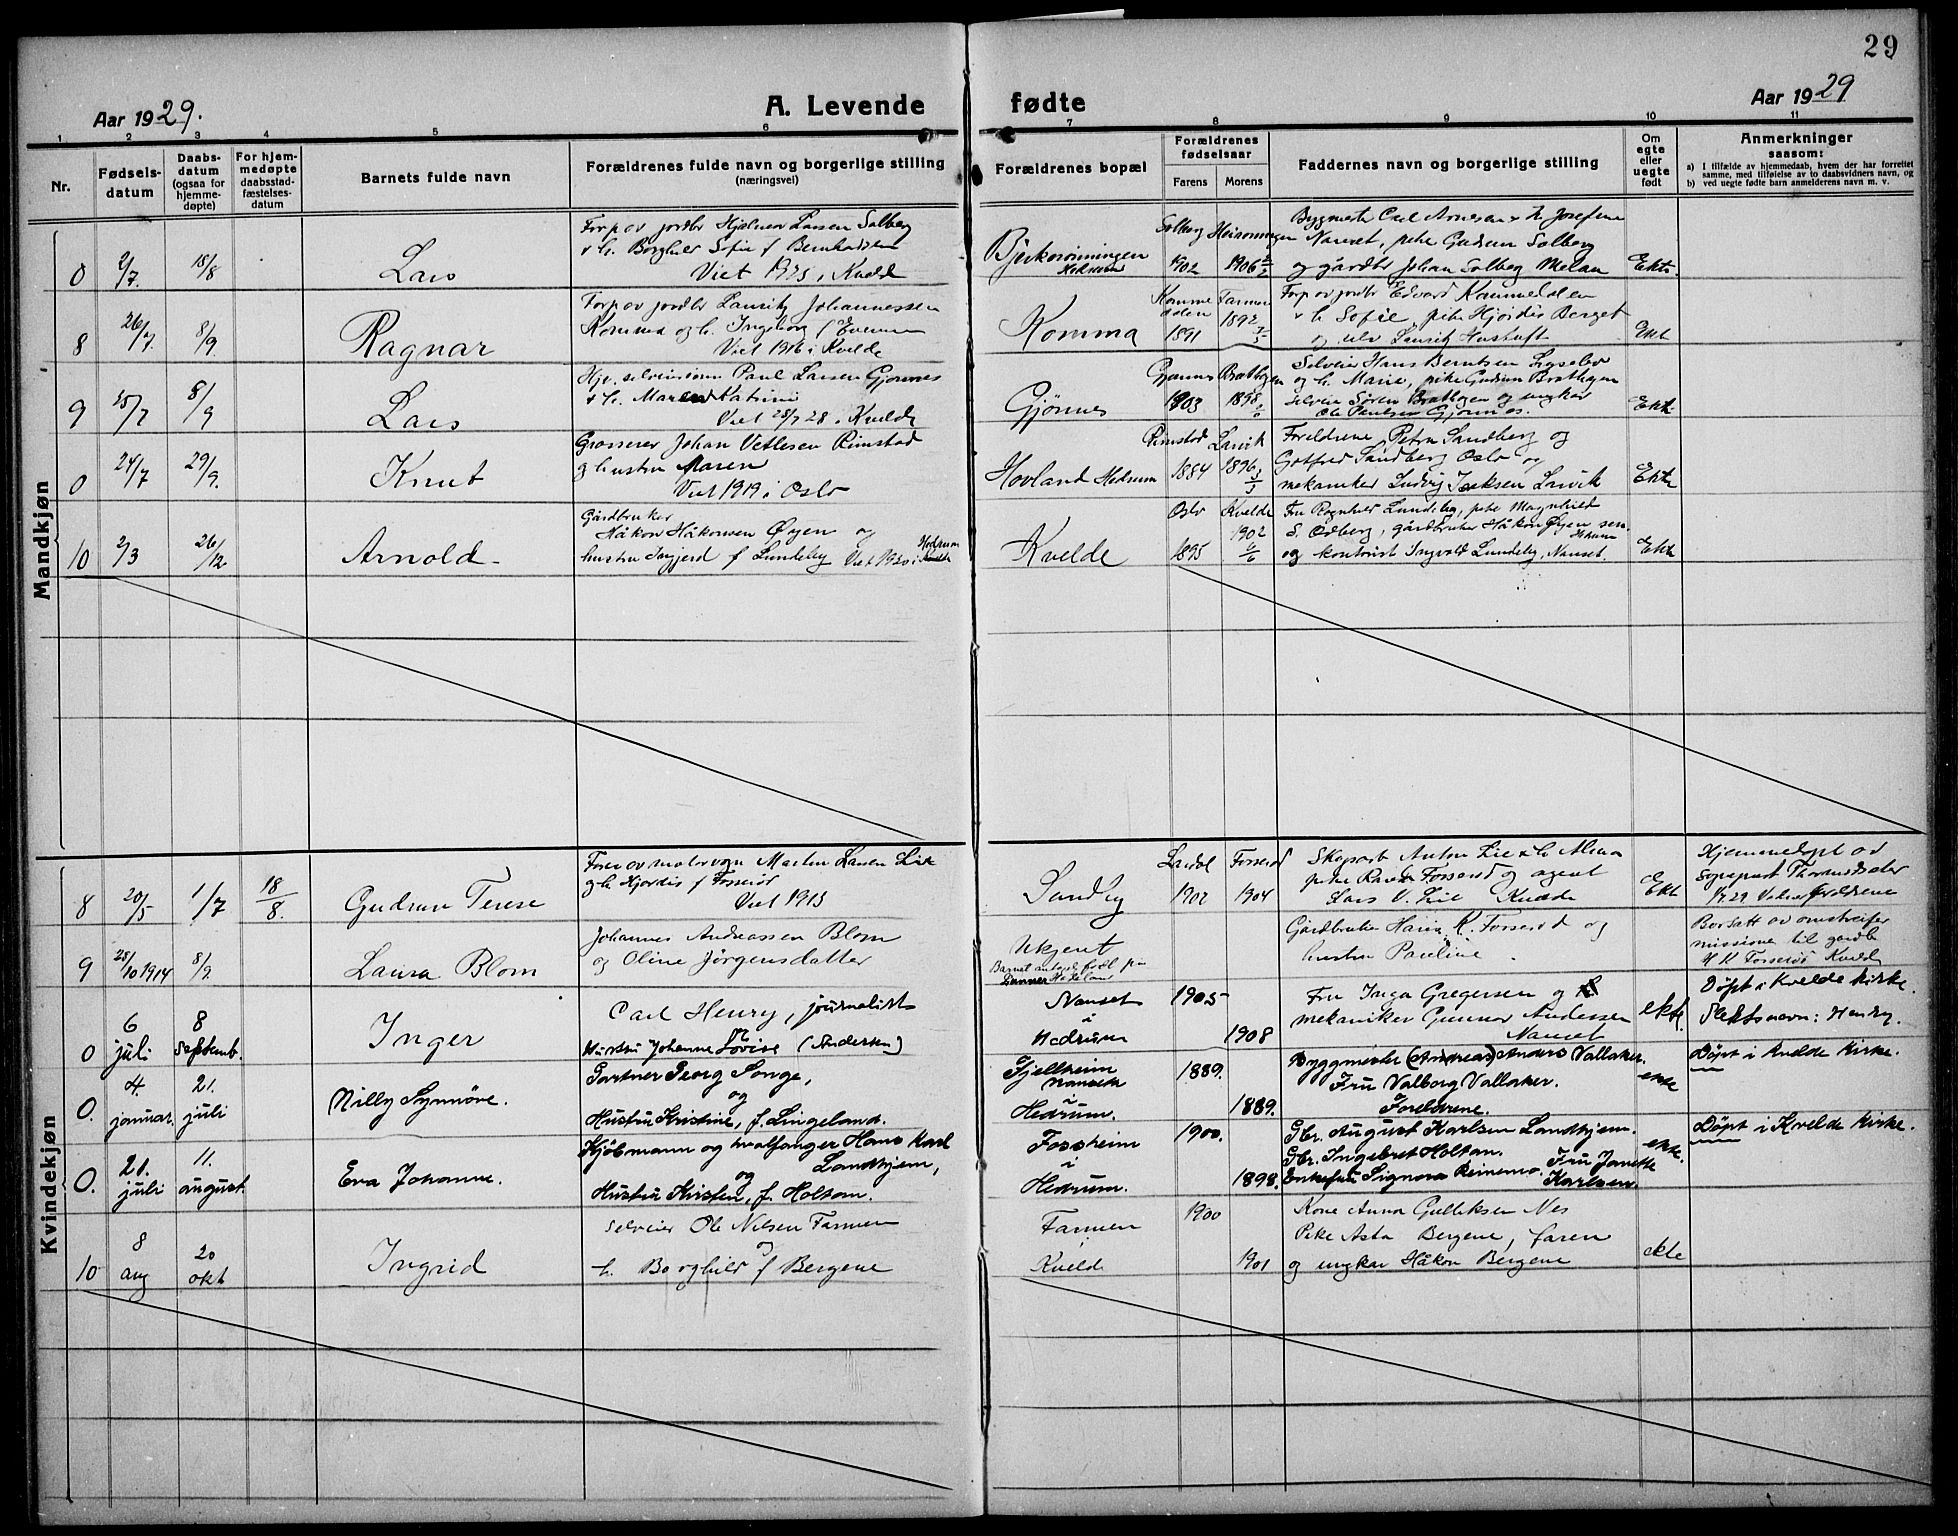 29
Aar 1929.
A. Levende
fødte
Aar 1929
1 2 3 4 5 6 7 8 9 10 11
Nr.
Fødsels-
datum
Daabs-
datum
(ogsaa for
hjemme-
døpte)
For hjem-
medøpte
daabsstad-
fæstelses-
datum
Barnets fulde navn
Forældrenes fulde navn og borgerlige stilling
(næringsvei)
Forældrenes bopæl
Forældrenes
fødselsaar
Farens
Morens
Faddernes navn og borgerlige stilling
Om
egte
eller
uegte
født
Anmerkninger
saasom:
a) I tilfælde av hjemmedaab, hvem der har forrettet
samme, med tilføielse av to daabsvidners navn, og
b) ved uegte fødte barn anmelderens navn m. v.
Mandkjøn
0 2/7. 18/8
Lars
Forp av jordbr Hjalmar Larsen Solberg
v h. Borghild Sofie f Berntsen
Viet 1925 i Kvelde
Hedrum
Solberg
1902 1906
Bygmester Carl Arnesen v h. Josefine
Nanset, pike Gudrun Solberg
og gårdbr Johan Solberg Melau
Ekte
8 26/7. 8/9.
Ragnar
Forp av jordbr Lauritz Johannessen
Komma og h. Ingeborg f Evensen
Viet 1916 i Kvelde
Komma
Farmen
1891 1892
Forp av jordbr Edvard Kommedalen
v h. Sofie, pike Hjördis Berget
og
Ekt
9 25/7 8/9
Lars
Paul Larsen Gjønnes
v h. Maren Katrine
Viet 28/7 28 i Kvelde
Gjønnes
Gjønnes
1903 1898
Selveier Hans Berntsen
og h. Marie, pike Gudrun
selveier Søren og ungkar
Ole Paulsen Gjønnes.
Ekte
0 24/7 29/9.
Knut
Grosserer Johan Vetlesen Rimstad
og hustru Maren
Viet 1919 i Oslo
Hovland Hedrum
Rimstad Larvik
1884 1896
Foreldrene, Petra Sandberg og
Gotfred Sandberg Oslo og
mekaniker Ludvig Isaksen Larvik
Ekte
10 2/3 26/12
Arnold
Gårdbruker
Håkon Håkonsen Øyen og
hustru Ingjerd f Lundeby Viet 1920 i Hedrum
Kvelde
Oslo Kvelde
1895 1902
Fru Ragnhild Lundeby, pike Magnhild
S. Odberg, gårdbruker Håkon Øyen sen.
og kontorist Ingvald Lundeby, Nanset.
Ekte
Kvindekjøn
8 20/5 1/7 18/8.
Gudrun Terese
Fører av motorvogn Martin Larsen Lie
og h. Hjørdis f Fosserød
Viet
Sandby
Fosserød
1902 1904
Anton Lie v h Alma
pike Fosserød og agent
Lars V. Lie Kvelde
Ekte
Hjemmedøpt av
Sogneprest
9 28/10 1914 8/9.
Laura Blom
Johannes Andreassen Blom
og Oline Jørgensdatter
Ukjent
Barnet
Gårdbruker Hans K. Fosserød og
hustru Pauline
Bortsatt av omstreifer
missionen til gardb
H K Fosserød Kvelde
0 6 juli 8 Septemb.
Inger
Carl Henry, journalist
og
Hustru Johanne Lovise (Andersen)
Nanset
i
Hedrum
1905
1908
Fru Inga Gregersen og
mekaniker Gunnar Andersen
Nanset
ekte.
Døpt i Kvelde kirke.
Slektsnavn: Henry.
0. 4. januar. 21. juli
Nilly Synnöve.
Gartner Georg Songe,
og
Hustru Kristine, f. Lingelund.
Fjellheim
Nanset
i
Hedrum.
1889.
1889.
Byggmester (Andreas) Anders Vallaker.
Fru Valborg Vallaker.
Foreldrene.
ekte
Døpt i Kvelde Kirke.
0. 21. juli 11. august.
Eva Johanne.
Kjøbmann og hvalfanger Hans Karl
Landhjem,
og
Hustru Kirsten, f. Holtan.
Fossheim
i
Hedrum.
1900.
1898.
Gbr. August Karlsen Landhjem.
Gbr. Ingebret Holtan.
Enkefru Signora Reinemo. Fru Janette
Karlsen.
ekte.
Døpt i Kvelde Kirke.
10 8 aug 20 okt
Ingrid
Selveier Ole Nilsen Farmen
og
h. Borghild f Bergene
Farmen
Kvelde
1900
1901
Kone Anna Gulliksen Nes
Pike Asta Bergene, faren
og ungkar Håkon Bergene
ekte